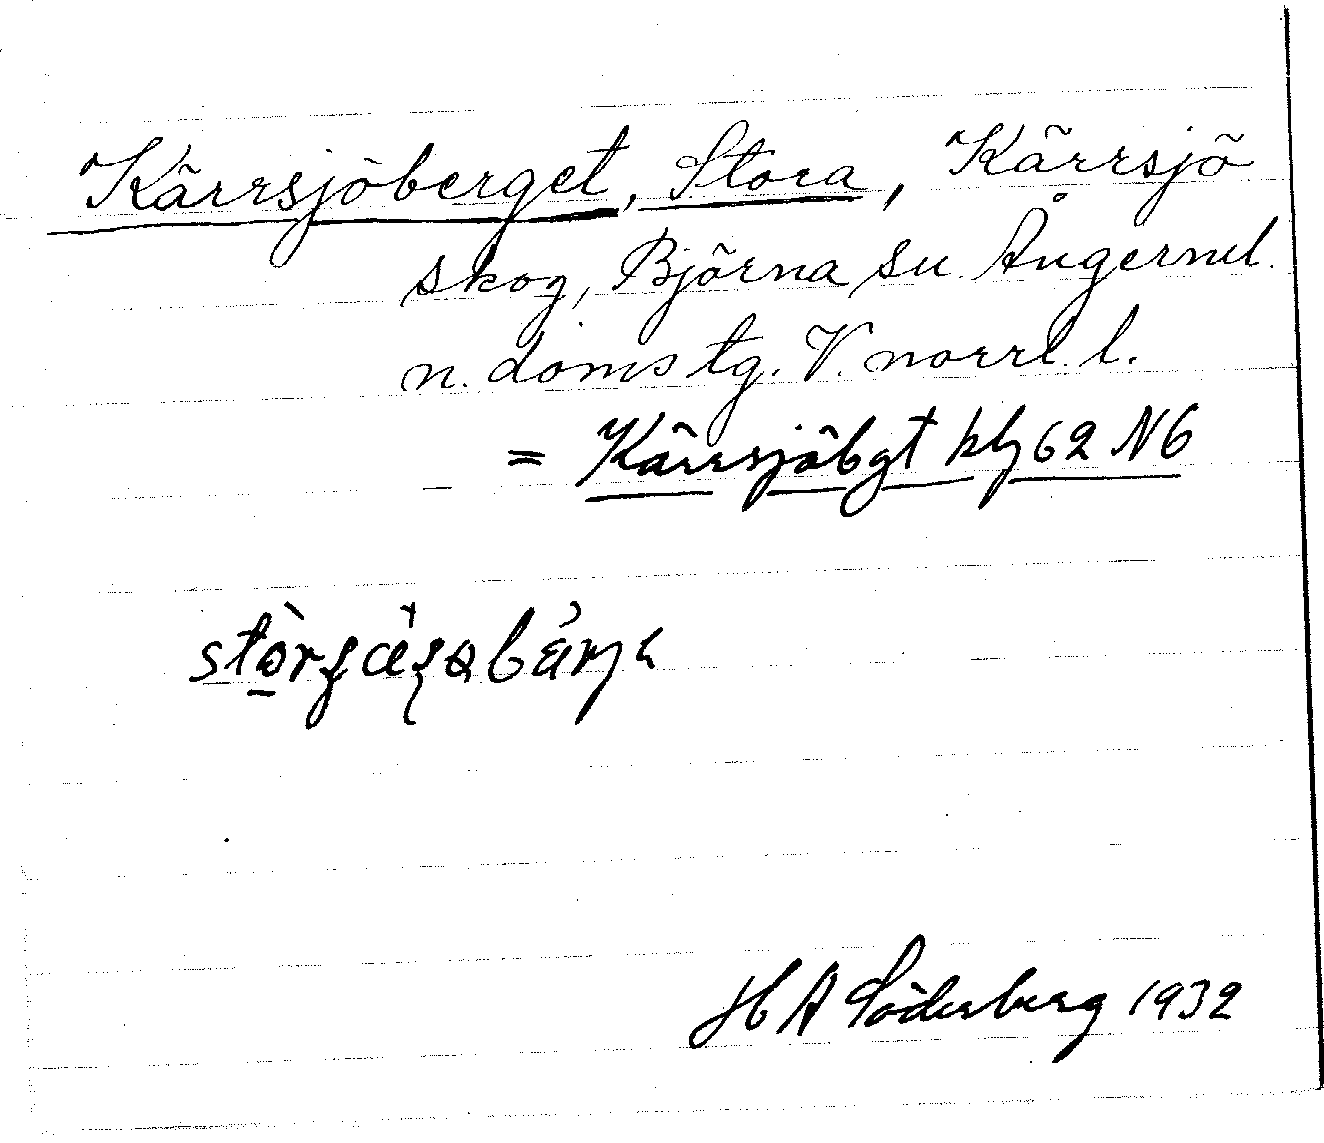 Kärrsjöberget, Stora, Kärrsjö
skog, Björna sn Ångermd.
n. doms tg. V. norrl. l.
= Kärrsjöbgt kbl 62 N6
H A Söderberg 1932